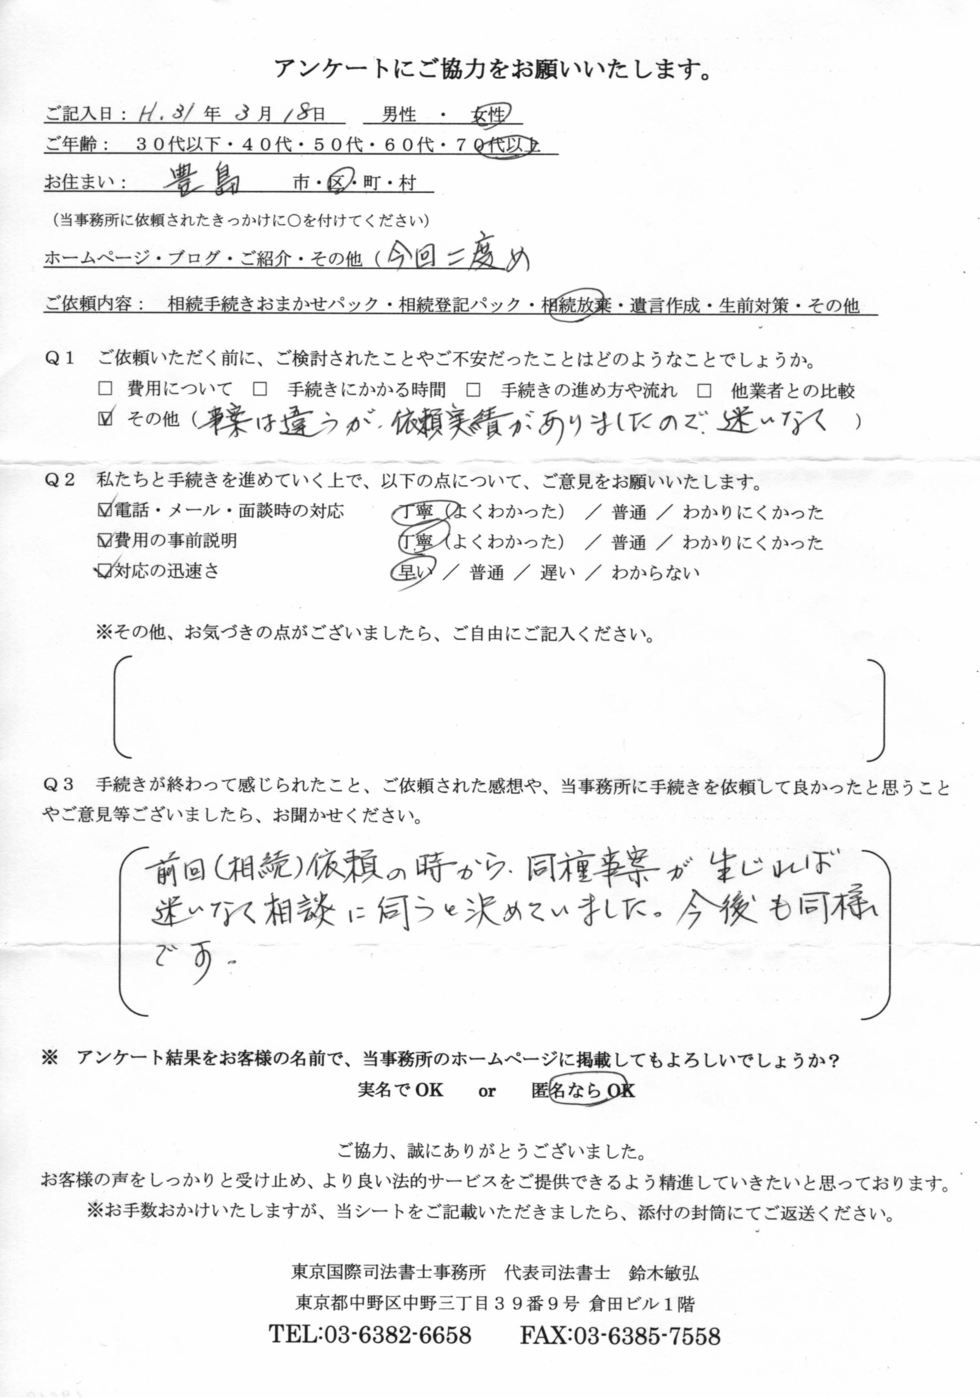 アンケートにご協力をお願いいたします。
ご記入日：H.31年 3月 18日　男性 ・ 女性
ご年齢：　３０代以下・４０代・５０代・６０代・７０代以上
お住まい：　豊島　市・区・町・村
（当事務所に依頼されたきっかけに〇を付けてください）
ホームページ・ブログ・ご紹介・その他（今回二度め
ご依頼内容：　相続手続きおまかせパック・相続登記パック・相続放棄・遺言作成・生前対策・その他
Ｑ１　ご依頼いただく前に、ご検討されたことやご不安だったことはどのようなことでしょうか。
□ 費用について　□　手続きにかかる時間　□　手続きの進め方や流れ　□　他業者との比較
☑ その他（事案は違うが、依頼実績がありましたので、迷いなく　）
Ｑ２　私たちと手続きを進めていく上で、以下の点について、ご意見をお願いいたします。
☑電話・メール・面談時の対応　丁寧（よくわかった）　／ 普通 ／ わかりにくかった
☑費用の事前説明　丁寧（よくわかった）　／ 普通 ／ わかりにくかった
☑対応の迅速さ　早い ／ 普通 ／ 遅い ／ わからない
※その他、お気づきの点がございましたら、ご自由にご記入ください。
Ｑ３　手続きが終わって感じられたこと、ご依頼された感想や、当事務所に手続きを依頼して良かったと思うこと
やご意見等ございましたら、お聞かせください。
前回（相続）依頼の時から、同種事案が生じれば
迷いなく相談に伺うと決めていました。今後も同様
です。
※　アンケート結果をお客様の名前で、当事務所のホームページに掲載してもよろしいでしょうか？
実名で OK　or　匿名なら OK
ご協力、誠にありがとうございました。
お客様の声をしっかりと受け止め、より良い法的サービスをご提供できるよう精進していきたいと思っております。
※お手数おかけいたしますが、当シートをご記載いただきましたら、添付の封筒にてご返送ください。
東京国際司法書士事務所　代表司法書士　鈴木敏弘
東京都中野区中野三丁目３９番９号 倉田ビル１階
TEL:03-6382-6658　FAX:03-6385-7558